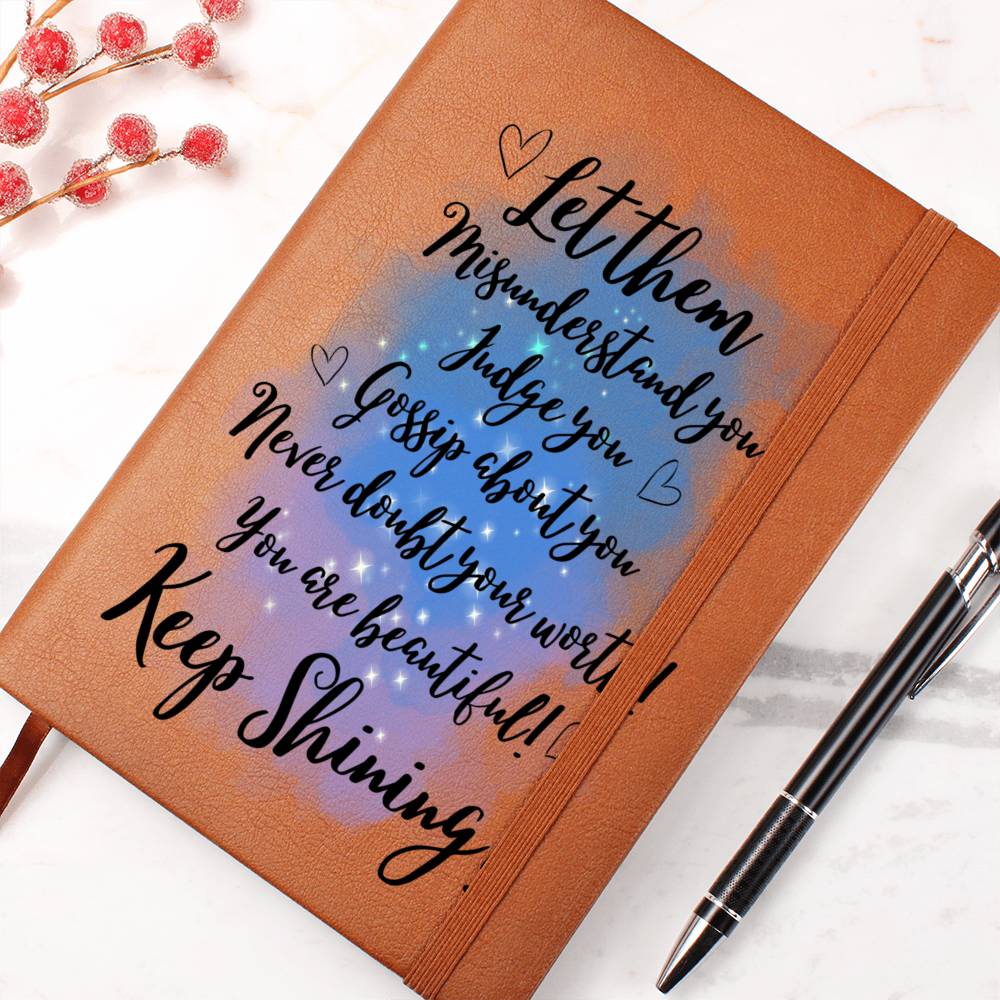 Let them
Misunderstand you
Judge you
Gossip about you
Never doubt your worth!
You are beautiful!
Keep Shining!